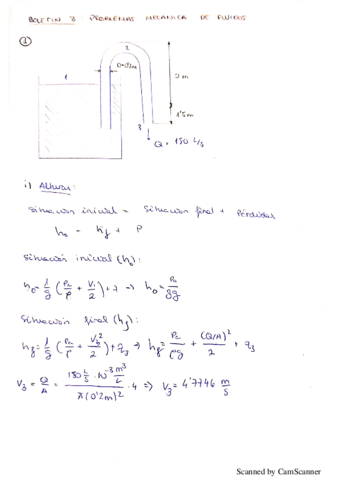 BOLETIN 3 PROBLEMAS MECANICA DE FLUIDOS
①
2
D=0'2m
1
2m
1'5m
3
Q = 150 L/s
i) Alturas:
Situación inicial = Situación final + Pérdidas
h₀ = hf + P
Situación inicial (h₀):
h₀ = 1/g (Pa/ρ + V₁/2) + z ⇒ h₀ = Pa/ρg
Situación final (hf):
hf = 1/g (Pa/ρ + V₃²/2) + z₃ ⇒ hf = Pa/ρg + (Q/A)²/2 + z₃
V₃ = Q/A = 150 L/s · 10⁻³ m³/L / π(0'2m)² · 4 ⇒ V₃ = 4'7746 m/s
Scanned by CamScanner